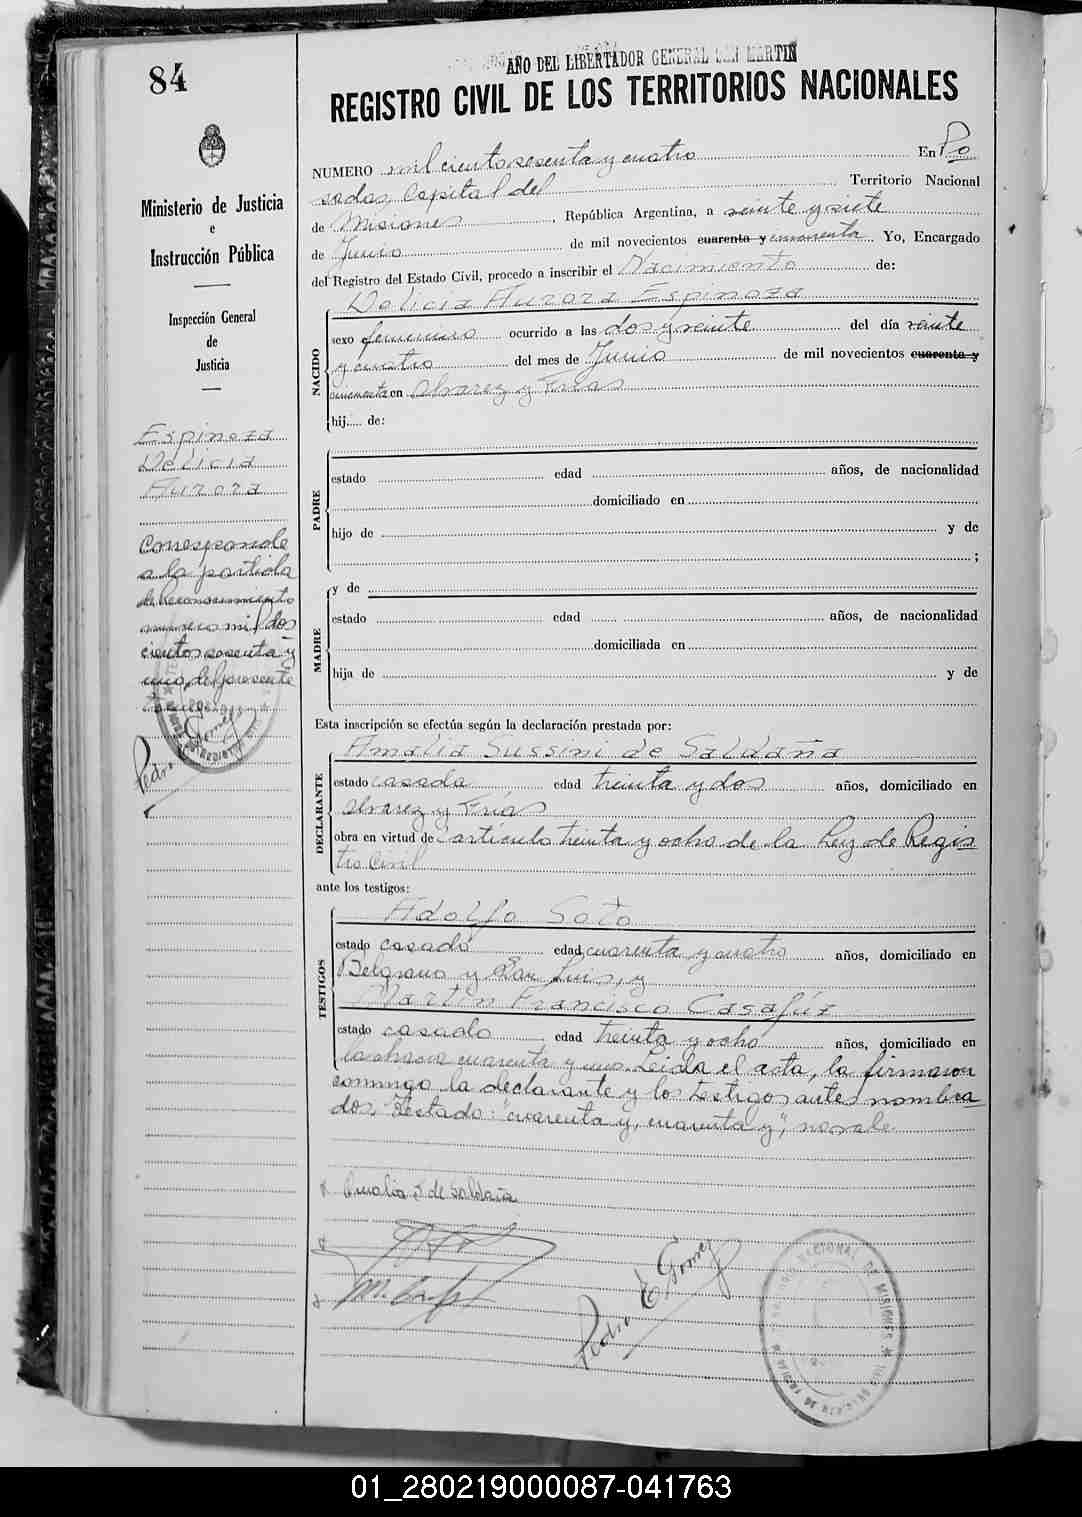 84
AÑO DEL LIBERTADOR GENERAL SAN MARTIN
REGISTRO CIVIL DE LOS TERRITORIOS NACIONALES
Ministerio de Justicia
e
Instrucción Pública
Inspección General
de
Justicia
Espinoza
Delicia
Aurora
Corresponde
a la partida
de Reconocimiento
numero mil dos
cientos sesenta y
uno, del presente
Pedro Gomez
NUMERO mil ciento sesenta y cuatro En Po
sadas, Capital del Territorio Nacional
de Misiones, República Argentina, a veinte y siete
de Junio de mil novecientos cuarenta y cincuenta Yo, Encargado
del Registro del Estado Civil, procedo a inscribir el Nacimiento de:
NACIDO
Delicia Aurora Espinoza
sexo femenino ocurrido a las dos y veinte del día veinte
y cuatro del mes de Junio de mil novecientos cuarenta y
cincuenta en Alvarez y Frías
hij..... de:
PADRE
estado edad años, de nacionalidad
domiciliado en
hijo de y de
;
MADRE
y de
estado edad años, de nacionalidad
domiciliada en
hija de y de
Esta inscripción se efectúa según la declaración prestada por:
DECLARANTE
Amalia Sussini de Saldaña
estado casada edad treinta y dos años, domiciliado en
Alvarez y Frías
obra en virtud de artículo treinta y ocho de la Ley de Regis
tro Civil
ante los testigos:
TESTIGOS
Adolfo Soto
estado casado edad cuarenta y cuatro años, domiciliado en
Belgrano y San Luis, y
Martín Francisco Casafúz
estado casado edad treinta y ocho años, domiciliado en
la chacra cuarenta y uno. Leida el acta, la firmaron
conmigo la declarante y los testigos antes nombra
dos, Testado: "cuarenta y, cuarenta y", no vale
Amalia S de Saldaña
Pedro E Gomez
NACIONAL DE MISIONES
01_280219000087-041763